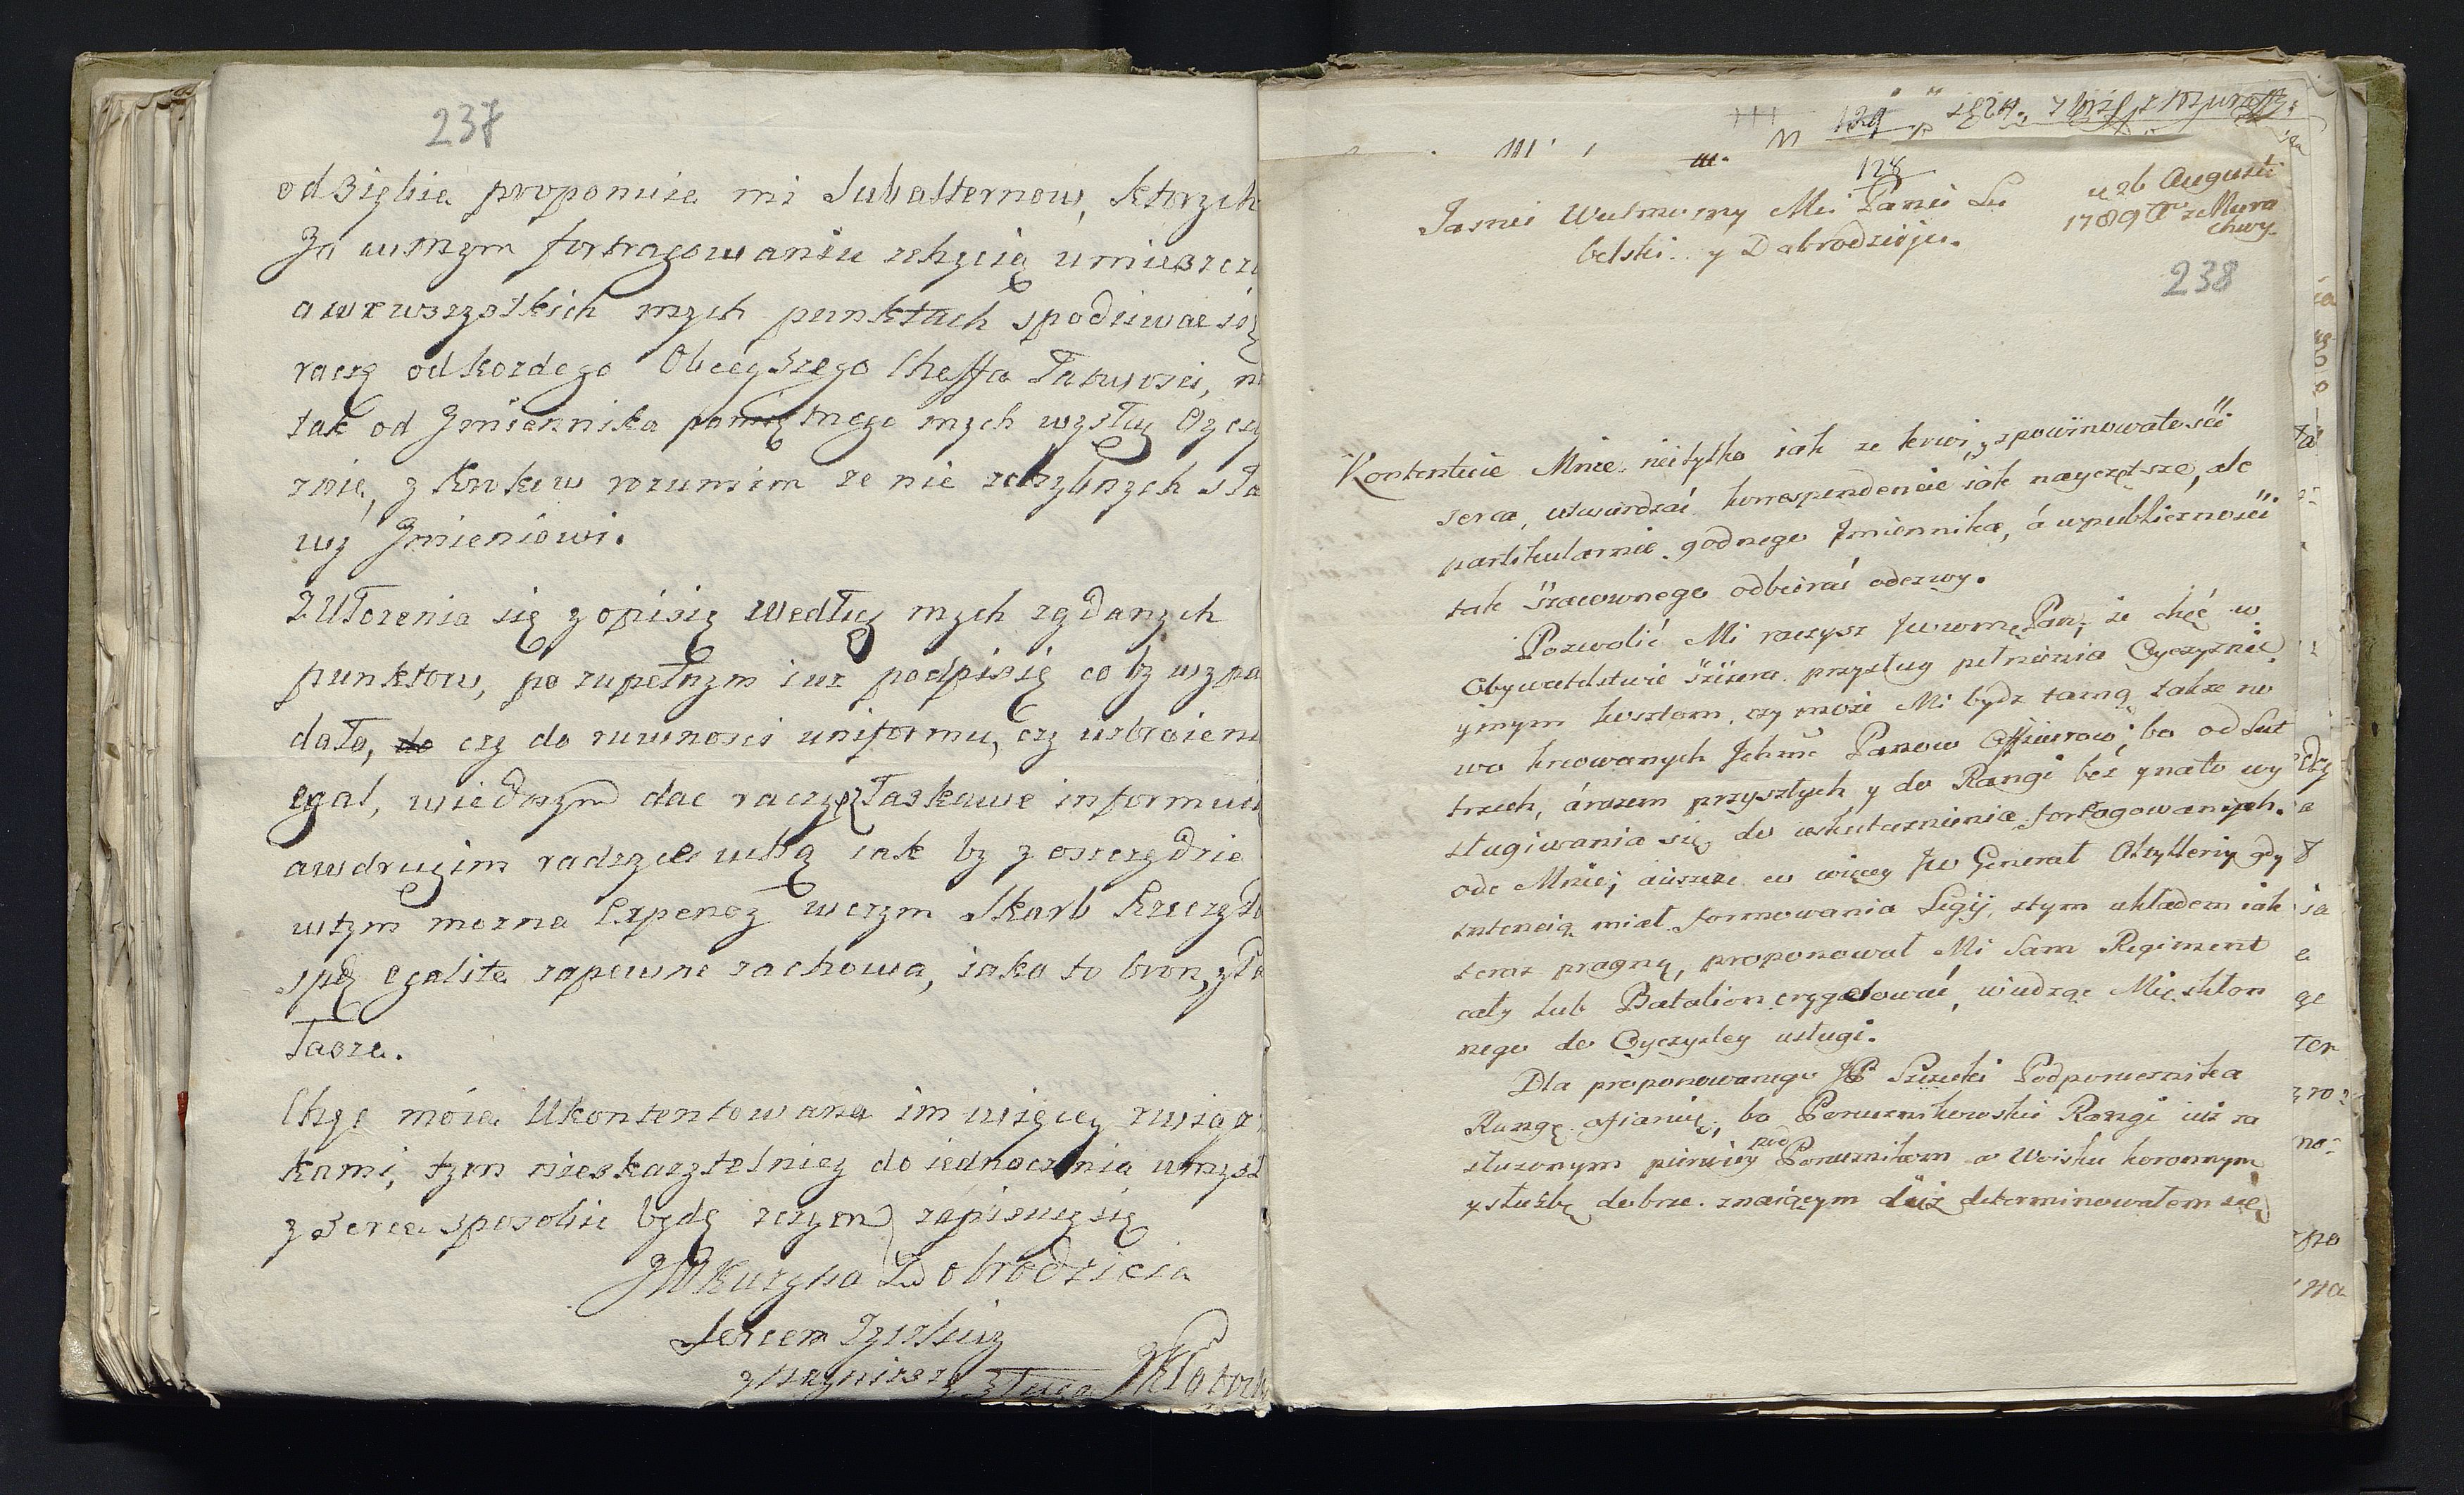 237
odsiębie proponuie mi Subalternow, ktorych
Ja w ſwym fortragowaniu zchęcią umieszczę
a wewszystkich mych punktach spodziewac się
raczę odkozdego Obcęyszego Cheffa Łatwosci, 
tak od Jmiennika pamiętnego mych wysług Oyczy
znie, y Krokow rozumiem ze nie zchybnych sła
wy Jmieniowi.
ZUłozenia się y opisię według mych zgdanych
punktow, po zupełnym iuz podpisię co by wypa
dało, do czy do ruwnosci uniformu, czy uzbroieni
egal, wiedszym dac raczysz Łaskawe informuci
awdrugim radzę wbą iak by y oszczędzic
wtym mozna Expensy wczym Skarb Rzeczyp
spą egalite zapewne zachowa, iako to bron, y Pa
łasze.
Chęc moia Ukontentowana im więcey związ
kami, tym nieskazytelniey do iednoczenia umysł
y serca sposobie będę zczym zapisuię się
JWKuzyna Dobrodzieia
Sercem Zyczliwy
y Sługa
129
128
Jasnie Wielmozny Mci Panie Lu
belski.. y Dobrodzieju.
d 26 Augusti
1789 Ao zMura
chwy.
238
Kontentuie Mnie, nie tylko iak ze krwi, y spowinowatosci
serca, utwierdzać korrespondencie iak nayczętsze, ale
partikularnie godnego Jmiennika, á wpubliczności
tak szacownego odbierać odezwy.
Pozwolić Mi raczysz Jwwmę Pan, że chęć w
Obywatelstwie szczera przysług pełnienia Oyczyznie
ymym kosztom, czy może Mi bydz tamą także no
wo kreowanych Jchmć Panow Officerow, bo od Lat
trzech, árazem przyszłych y do Rangi bez ynato wy
sługiwania się, do uskutecznienia fortragowanych
ode Mnie; á ieszcze co więcey Jw Generał Artylleriy gdy
intencią miał formowania Legij, z tym układem iak
teraz pragnę, proponował Mi sam Regiment
cały lub Batalion erygować, wiedząc Mię skłon
nego do Oyczystey usługi.
Dla proponowanego JP Podporucznika
Rangę ofiaruię, bo Porucznikowskie Rangi iuż za
służonym pierwiey pod Porucznikom w Woisku koronnym
y służbę dobrze znaiącym dać determinowałem się